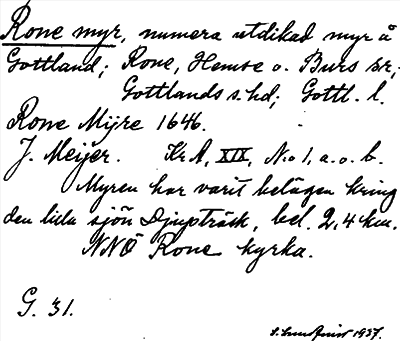 Rone myr, numera utdikad myr å
Gottland; Rone, Hemse o. Burs sr;
Gottlands s. hd; Gottl. l.
Rone Mÿre 1646.
J. Meijer. KrA, XIX, No 1, a. o. b.
Myren har varit belägen kring
den lilla sjön Djupträsk, bel. 2,4 km.
NNÖ Rone kyrka.
G. 31.
1937.